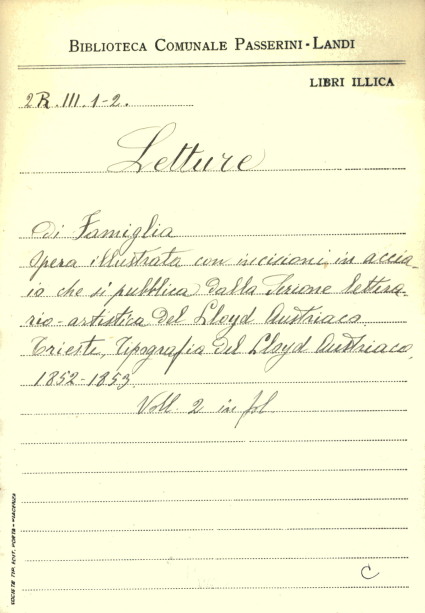 BIBLIOTECA COMUNALE PASSERINI-LANDI
LIBRI ILLICA
2R.III.1-2.
Letture
di Famiglia
Opera illustrata con incisioni in accia-
io che si pubblica dalla Sezione lettera-
rio-artistica del Lloyd Austriaco.
Trieste, Tipografia del Lloyd Austriaco,
1852-1853
Voll. 2 in fol.
C